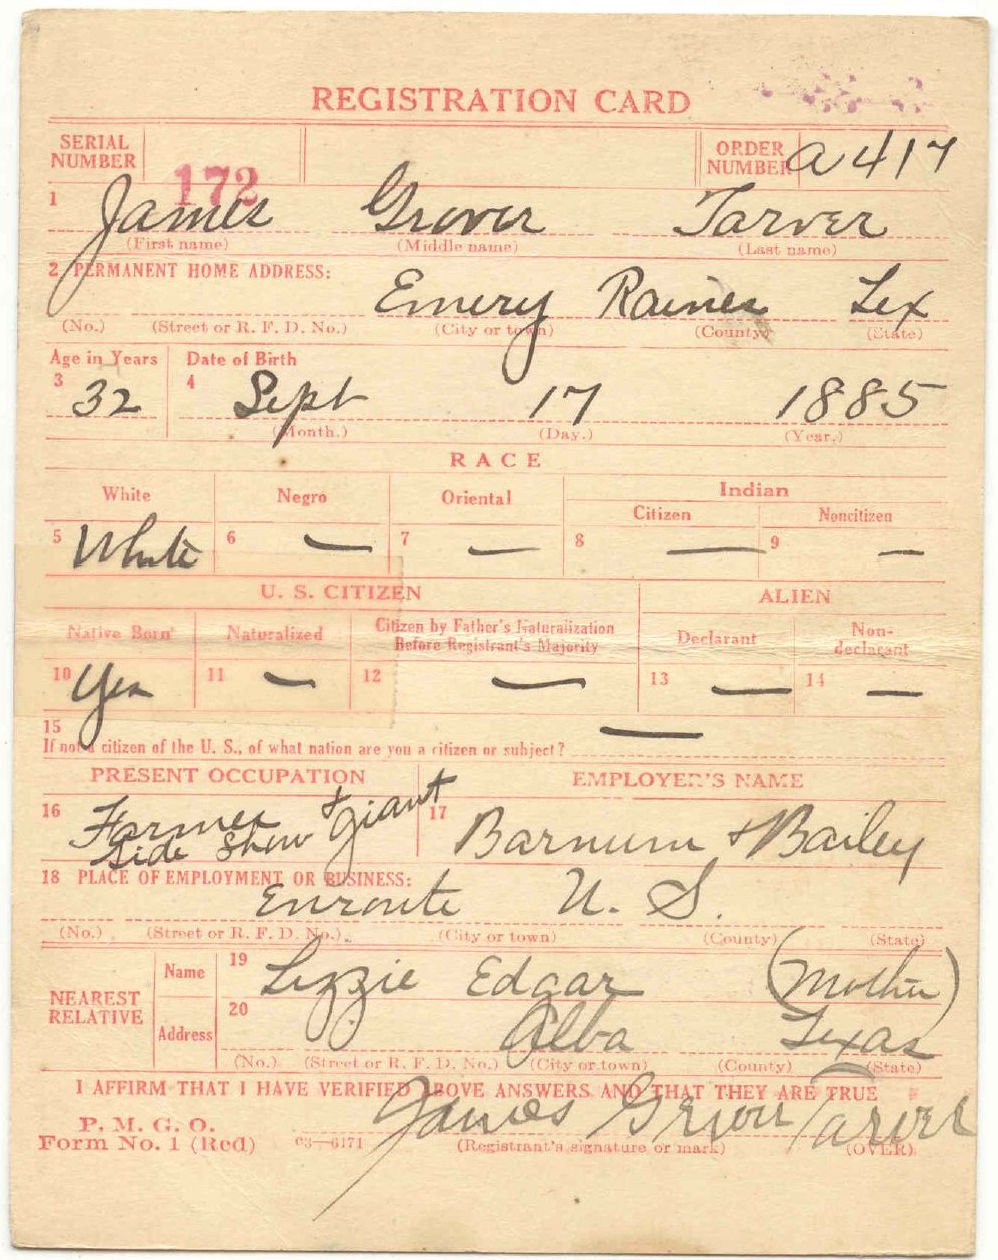 REGISTRATION CARD
SERIAL NUMBER 172 ORDER NUMBER A 417
1 James Grover Tarver
(First name) (Middle name) (Last name)
2 PERMANENT HOME ADDRESS:
Emery Raines Tex
(No.) (Street or R. F. D. No.) (City or town) (County) (State)
Age in Years Date of Birth
3 32 4 Sept 17 1885
(Month.) (Day.) (Year.)
RACE
White Negro Oriental Indian
Citizen Noncitizen
5 White 6 — 7 — 8 — 9 —
U. S. CITIZEN ALIEN
Native Born Naturalized Citizen by Father's Naturalization Before Registrant's Majority Declarant Non-declarant
10 Yes 11 — 12 — 13 — 14 —
15 —
If not a citizen of the U. S., of what nation are you a citizen or subject?
PRESENT OCCUPATION EMPLOYER'S NAME
16 Farmer + Giant 17 Barnum & Bailey
Side Show
18 PLACE OF EMPLOYMENT OR BUSINESS:
Enroute U. S.
(No.) (Street or R. F. D. No.) (City or town) (County) (State)
NEAREST RELATIVE Name 19 Lizzie Edgar (Mother)
Address 20 Alba Texas
(No.) (Street or R. F. D. No.) (City or town) (County) (State)
I AFFIRM THAT I HAVE VERIFIED ABOVE ANSWERS AND THAT THEY ARE TRUE
P. M. G. O. James Grover Tarver
Form No. 1 (Red) c3—6171 (Registrant's signature or mark) (OVER)